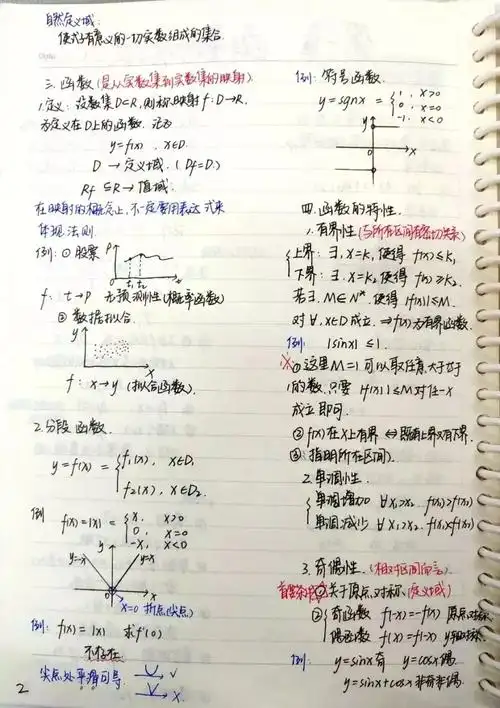 自然定义域：
使式子有意义的一切实数组成的集合.
三.函数(是从实数集到实数集的映射)
1.定义：设数集D⊂R,则称映射f:D→R.
为定义在D上的函数.记为
y=f(x) , x∈D.
D → 定义域. (Df=D.)
Rf ⊆R → 值域.
在映射的概念上,不一定要用表达式来
体现法则.
例：①股票
P
t₁ t₂
t
f: t→P 无预测性(概率函数)
②数据拟合.
y
x
f: x→y (拟合函数).
2.分段函数.
y=f(x)= { f₁(x), x∈D₁
f₂(x), x∈D₂.
例 f(x)=|x|= { x, x>0
0, x=0
-x, x<0
y
y=-x y=x
0 x
x=0 折点(尖点)
例：f(x)=|x| 求f'(0)
不存在
尖点处平滑可导. √
×.
2
例：符号函数.
y=sgnx = { 1, x>0
0, x=0
-1, x<0
y
0 x
四.函数的特性.
1.有界性(与所在区间有密切关系)
{ 上界：∃, x=k₁ 使得 f(x)≤k₁
下界：∃, x=k₂ 使得 f(x)≥k₂.
若∃, M∈N*.使得|f(x)|≤M.
对∀, x∈D成立. ⇒f(x)为有界函数.
例： |sinx| ≤1.
①这里M=1可以取任意大于等于
1的数.只要 |f(x)|≤M对任一x
成立即可.
②f(x)在X上有界 ⇔既有上界又有下界.
③指明所在区间).
2.单调性.
{ 单调增加 ∀x₁>x₂ f(x₁)>f(x₂)
单调减少 ∀x₁>x₂. f(x₁)<f(x₂)
3.奇偶性.(相对区间而言).
①关于原点对称(定义域)
② { 奇函数 f(-x)=-f(x) 原点对称
偶函数 f(x)=f(-x) y轴对称.
例： y=sinx奇 y=cosx偶.
y=sinx+cosx非奇非偶.